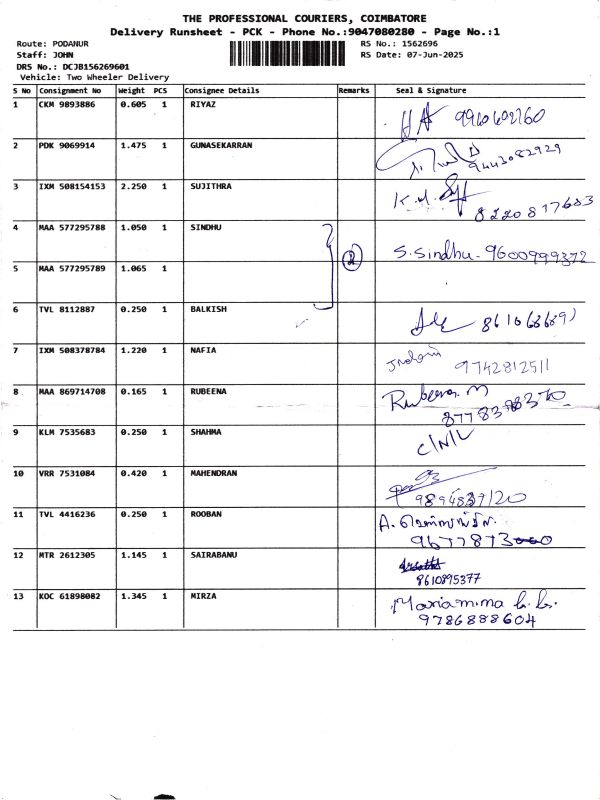 THE PROFESSIONAL COURIERS, COIMBATORE
Delivery Runsheet - PCK - Phone No.:9047080280 - Page No.:1
Route: PODANUR
Staff: JOHN
DRS No.: DCJB156269601
Vehicle: Two Wheeler Delivery
RS No.: 1562696
RS Date: 07-Jun-2025
S No Consignment No Weight PCS Consignee Details Remarks Seal & Signature
1 CKM 9893886 0.605 1 RIYAZ
2 PDK 9069914 1.475 1 GUNASEKARRAN 9443082929
3 IXM 508154153 2.250 1 SUJITHRA 8220817683
4 MAA 577295788 1.050 1 SINDHU 2 S.Sindhu - 9600999372
5 MAA 577295789 1.065 1
6 TVL 8112887 0.250 1 BALKISH
7 IXM 508378784 1.220 1 NAFIA 9742812511
8 MAA 869714708 0.165 1 RUBEENA Rubeena. M
9 KLM 7535683 0.250 1 SHAHMA C/N/L
10 VRR 7531084 0.420 1 MAHENDRAN
11 TVL 4416236 0.250 1 ROOBAN A.
12 MTR 2612305 1.145 1 SAIRABANU 8610895377
13 KOC 61898082 1.345 1 MIRZA Mariamma
9786888604